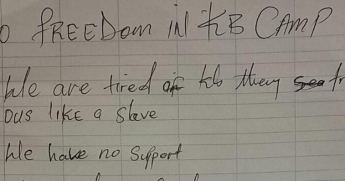 o FREEDOM IN KB CAMP
We are tired of kb they
ous like a slave
We have no support